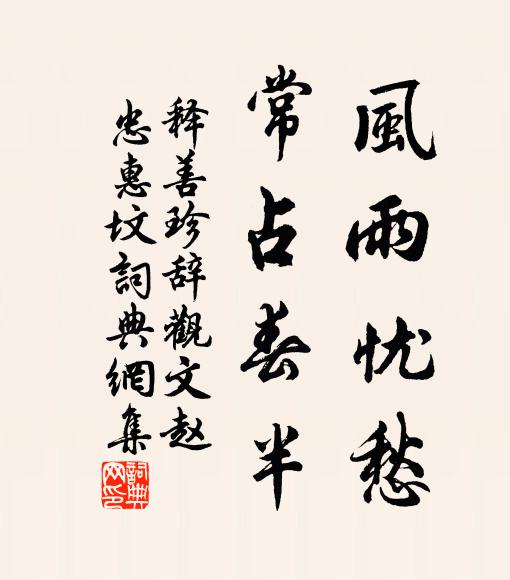 風雨忧愁
常占春半
释善珍辞觀文赵
忠惠坟詞典網集
詞典网印